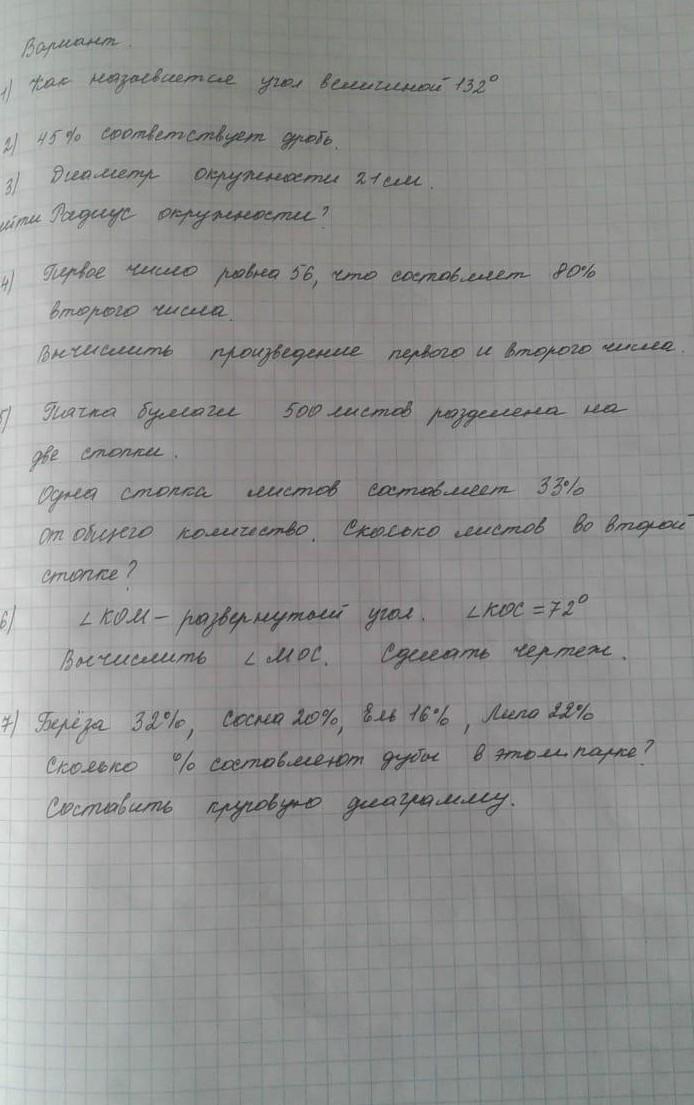 Вариант.
1) Как называется угол величиной 132°
2) 45% соответствует дробь.
3) Диаметр окружности 21см.
йти Радиус окружности?
4) Первое число равна 56, что составляет 80%
второго числа.
Вычислить произведение первого и второго числа.
5) Пачка бумаги 500 листов разделена на
две стопки.
Одна стопка листов составляет 33%
от общего количество. Сколько листов во второй
стопке?
6) ∠KOM – развернутый угол. ∠KOC = 72°
Вычислить ∠MOC. Сделать чертеж.
7) Берёза 32%, Сосна 20%, Ель 16%, Липа 22%
Сколько % составляют дубы в этом парке?
Составить круговую диаграмму.